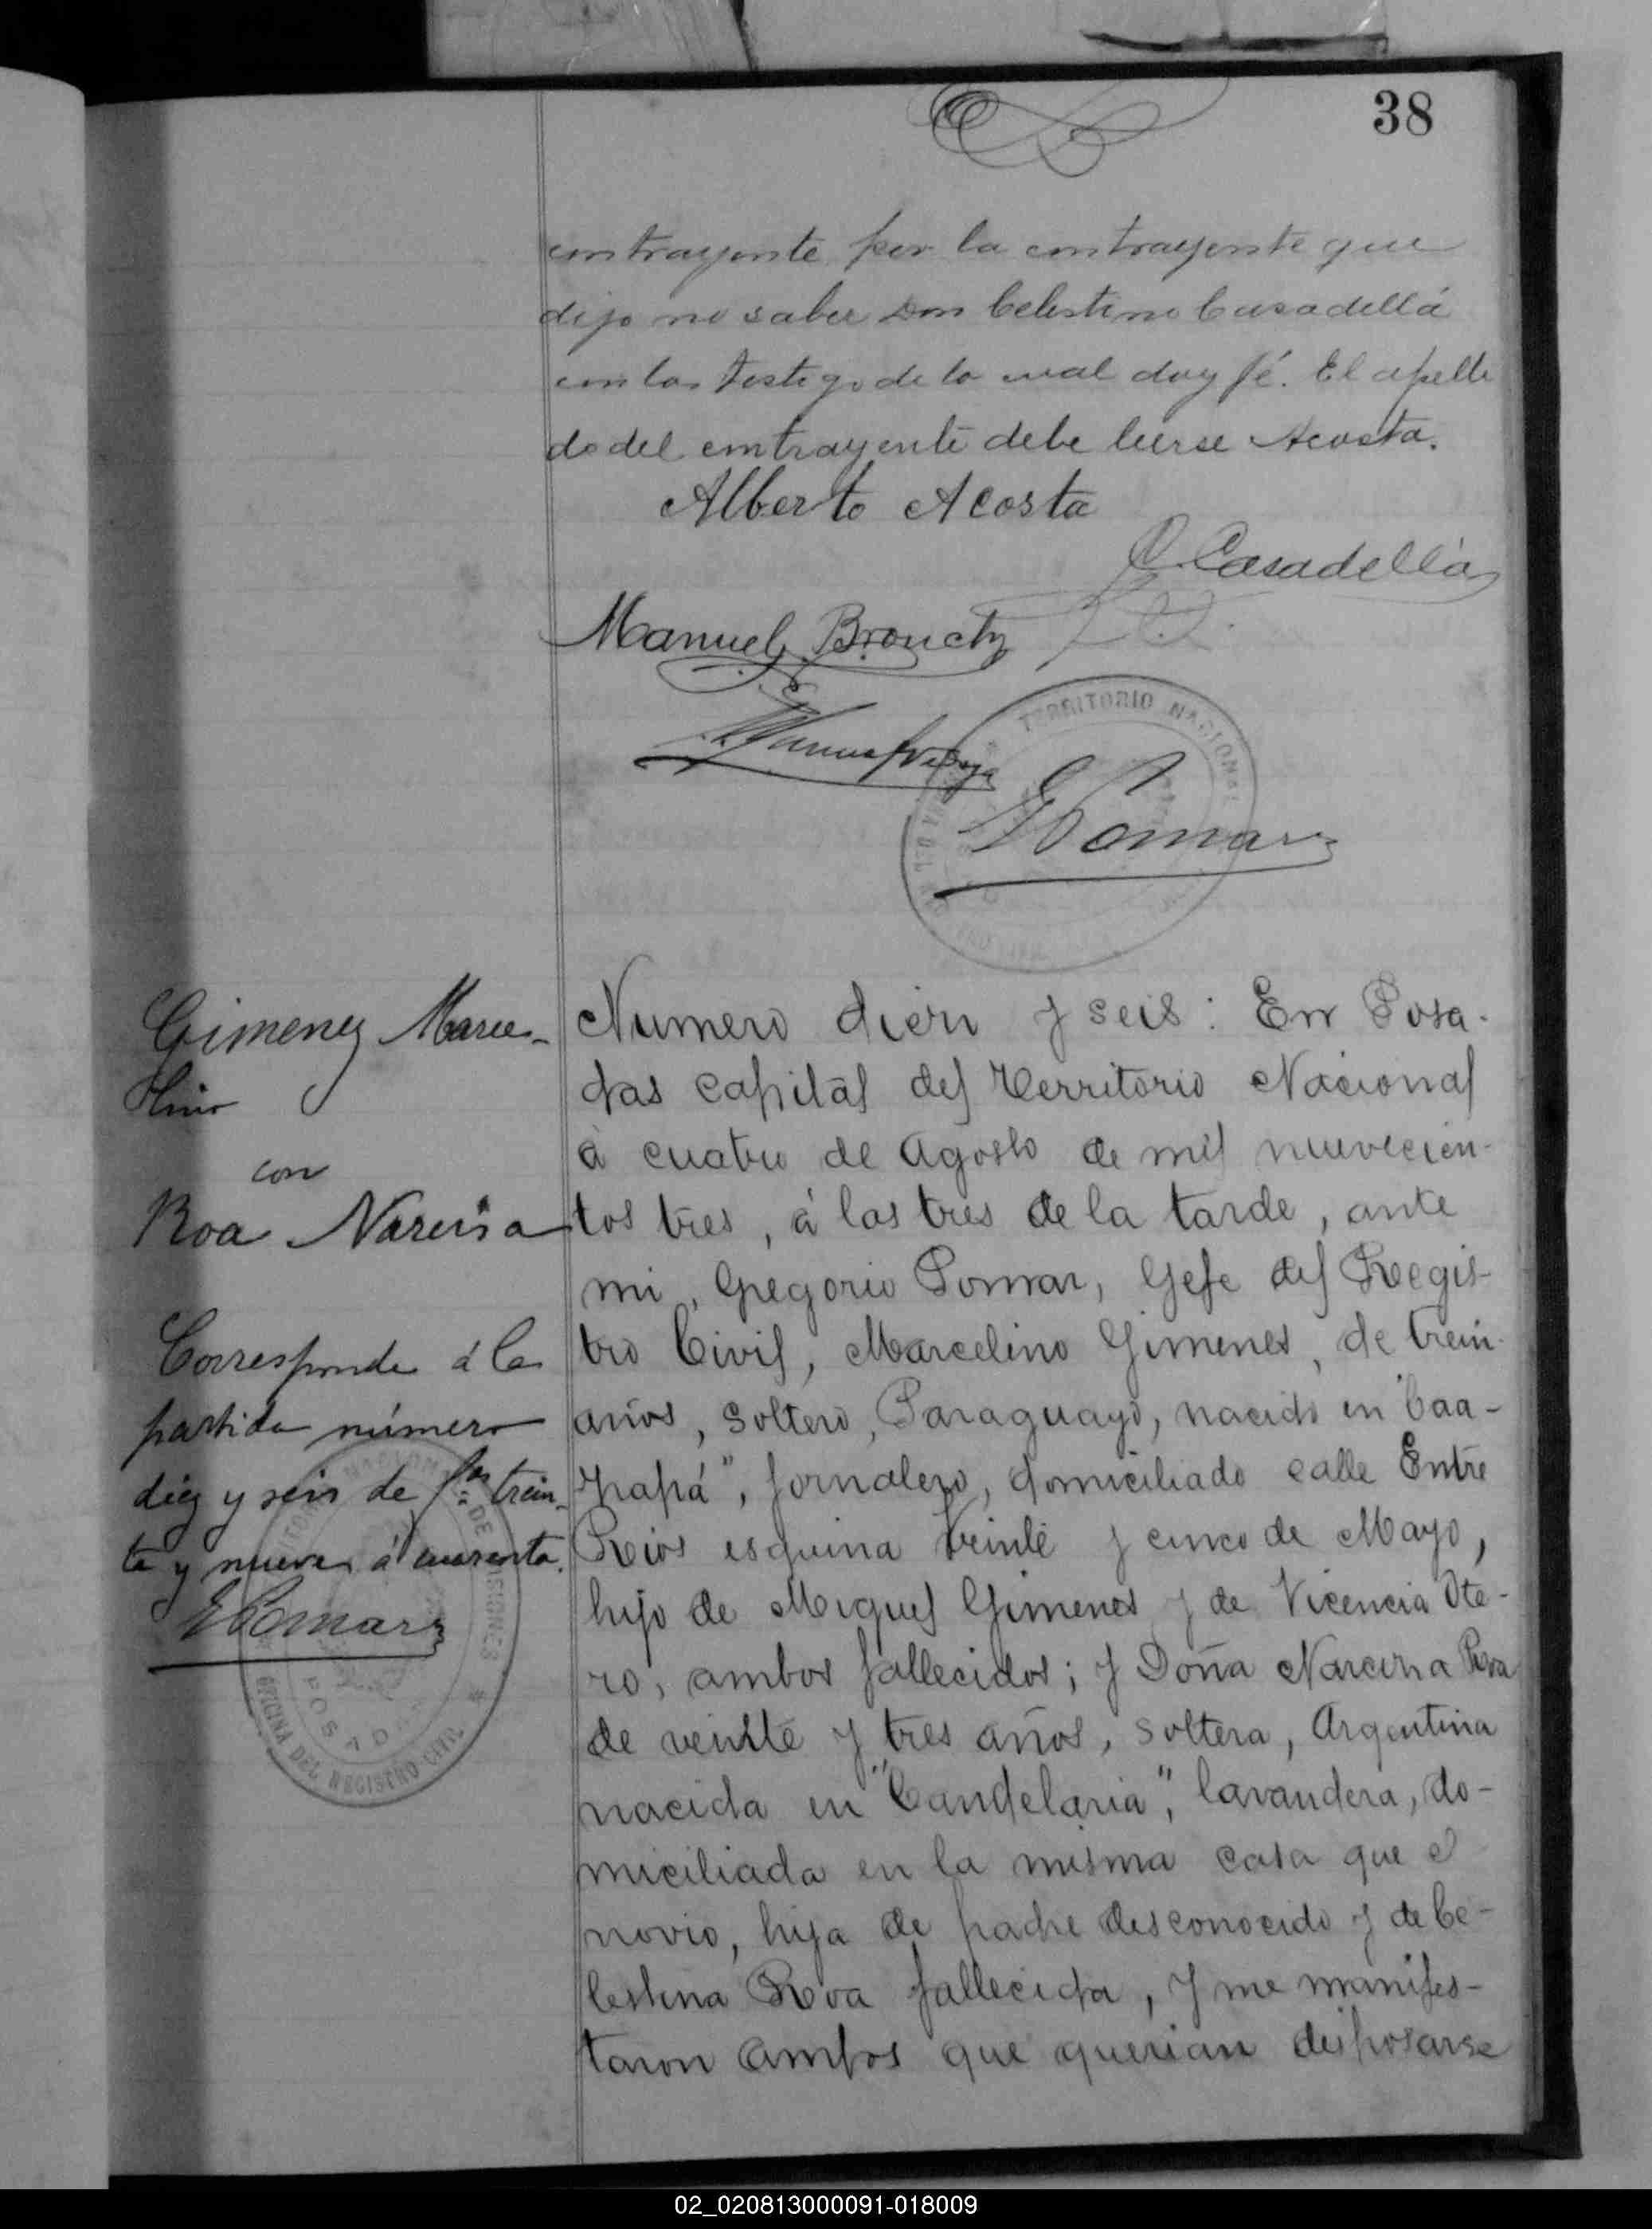 38
contrayente por la contrayente que
dijo no saber Don Celestino Casadellá
con los testigo de lo cual doy fé. El apelli
do del contrayente debe leerse Acosta.
Alberto Acosta
C. Casadellá
Manuel Brouchy
TERRITORIO NACIONAL
GPomar
Gimenez Marce-
lino
con
Roa Narcisa
Corresponde á la
partida número
diez y seis de fas trein-
ta y nueve á cuarenta.
GPomar
NACIONAL DE MISIONES
POSADAS
OFICINA DEL REGISTRO CIVIL
Numero diez y seis: En Posa-
das capital del Territorio Nacional
á cuatro de Agosto de mil nuvecien-
tos tres, á las tres de la tarde, ante
mi, Gregorio Pomar, Gefe del Regis-
tro Civil, Marcelino Gimenes, de trein-
años, soltero, Paraguayo, nacido en "Caa-
papá", jornalero, domiciliado calle Entre
Rios esquina Veinte y cinco de Mayo,
hijo de Miguel Gimenes y de Vicencia Ote-
ro, ambos fallecidos; y Doña Narcisa Roa
de veinte y tres años, soltera, Argentina
nacida en "Candelaria", lavandera, do-
miciliada en la misma casa que el
novio, hija de padre desconocido y de Ce-
lestina Roa fallecida, y me manifes-
taron ambos que querian desposarse
02_020813000091-018009